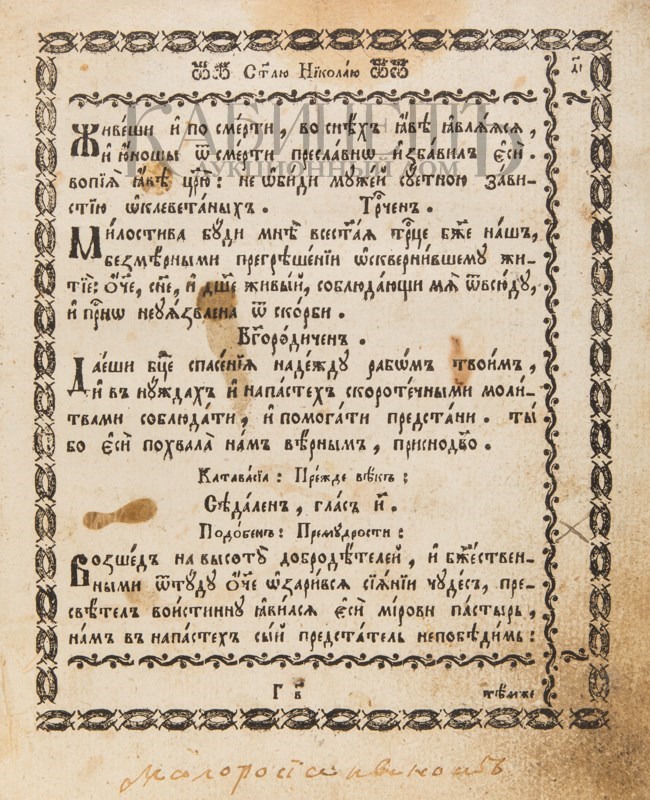 Ст҃лю Нїколаю
д҃і
КАБИНЕТЪ
АУКЦИОННЫЙ ДОМ
Живе́ши и҆ по сме́рти, во снѣ́хъ ꙗ҆́вѣ ꙗ҆влѧ́ѧсѧ,
и҆ ю҆́ношы ѿ сме́рти пресла́внѡ и҆зба́вилъ є҆сѝ.
вопїѧ̀ ꙗ҆́вѣ цр҃ю̀: не ѡ҆би́ди мꙋже́й сꙋ́етною зави-
стїю ѡ҆клевета́ныхъ. Трⷪ҇ченъ.
Ми́лостива бꙋ́ди мнѣ̀ всест҃а́ѧ трⷪ҇це бж҃е на́шъ,
безмѣ́рными прегрѣше́нїи ѡ҆скверни́вшему жи-
тїѐ: ѻ҆́ч҃е, сн҃е, и҆ дш҃е живы́й, соблюда́ющи мѧ̀ ѿвсю́дꙋ,
и҆ при́снѡ неуѧ́звлена ѿ ско́рби.
Бг҃оро́диченъ.
Дае́ши бц҃е спасе́нїѧ наде́ждꙋ рабѡ́мъ твои̑мъ,
и҆ в нꙋ́ждахъ и҆ напа́стехъ скороте́чными моли́-
твами соблюда́ти, и҆ помога́ти предста́ни. ты́
бо є҆сѝ похвала̀ на́мъ вѣ́рнымъ, приснодв҃о.
Катава́сїа: Пре́жде вѣ̑къ:
Сѣда́ленъ, гла́съ и҃.
Подо́бенъ: Прему́дрости:
Возше́дъ на высотꙋ̀ добродѣ́телей, и҆ бж҃е́ствен-
ными ѿтꙋ́дꙋ ѻ҆́ч҃е ѡ҆зари́всѧ сїѧ́нїи чуде́съ, пре-
свѣ́телъ вои́стиннꙋ ꙗ҆ви́лсѧ є҆сѝ мі́рови па́стырь,
на́мъ въ напа́стехъ сы́й предста́тель непобѣди́мъ:
Г в҃
тѣ́мже